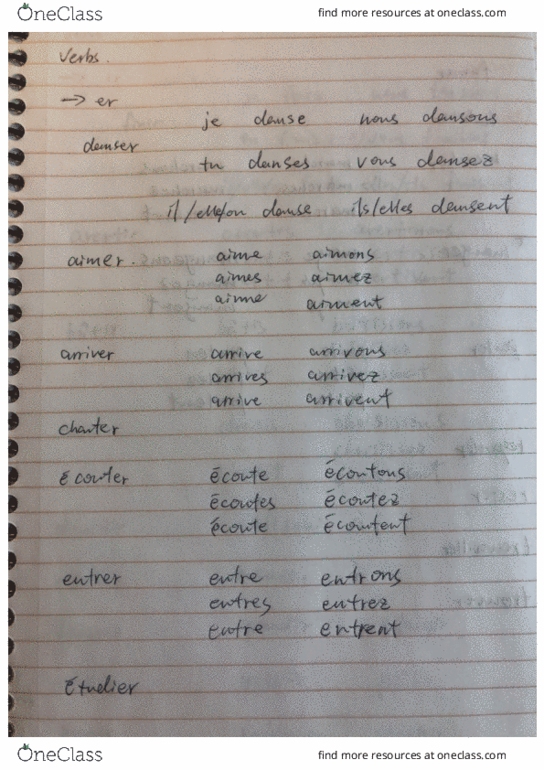 OneClass find more resources at oneclass.com
Verbs.
→ er
je danse nous dansons
danser
tu danses vous dansez
il/elle/on danse ils/elles dansent
aimer. aime aimons
aimes aimez
aime aiment
arriver arrive arrivons
arrives arrivez
arrive arrivent
chanter
écouter écoute écoutons
écoutes écoutez
écoute écoutent
entrer entre entrons
entres entrez
entre entrent
étudier
OneClass find more resources at oneclass.com